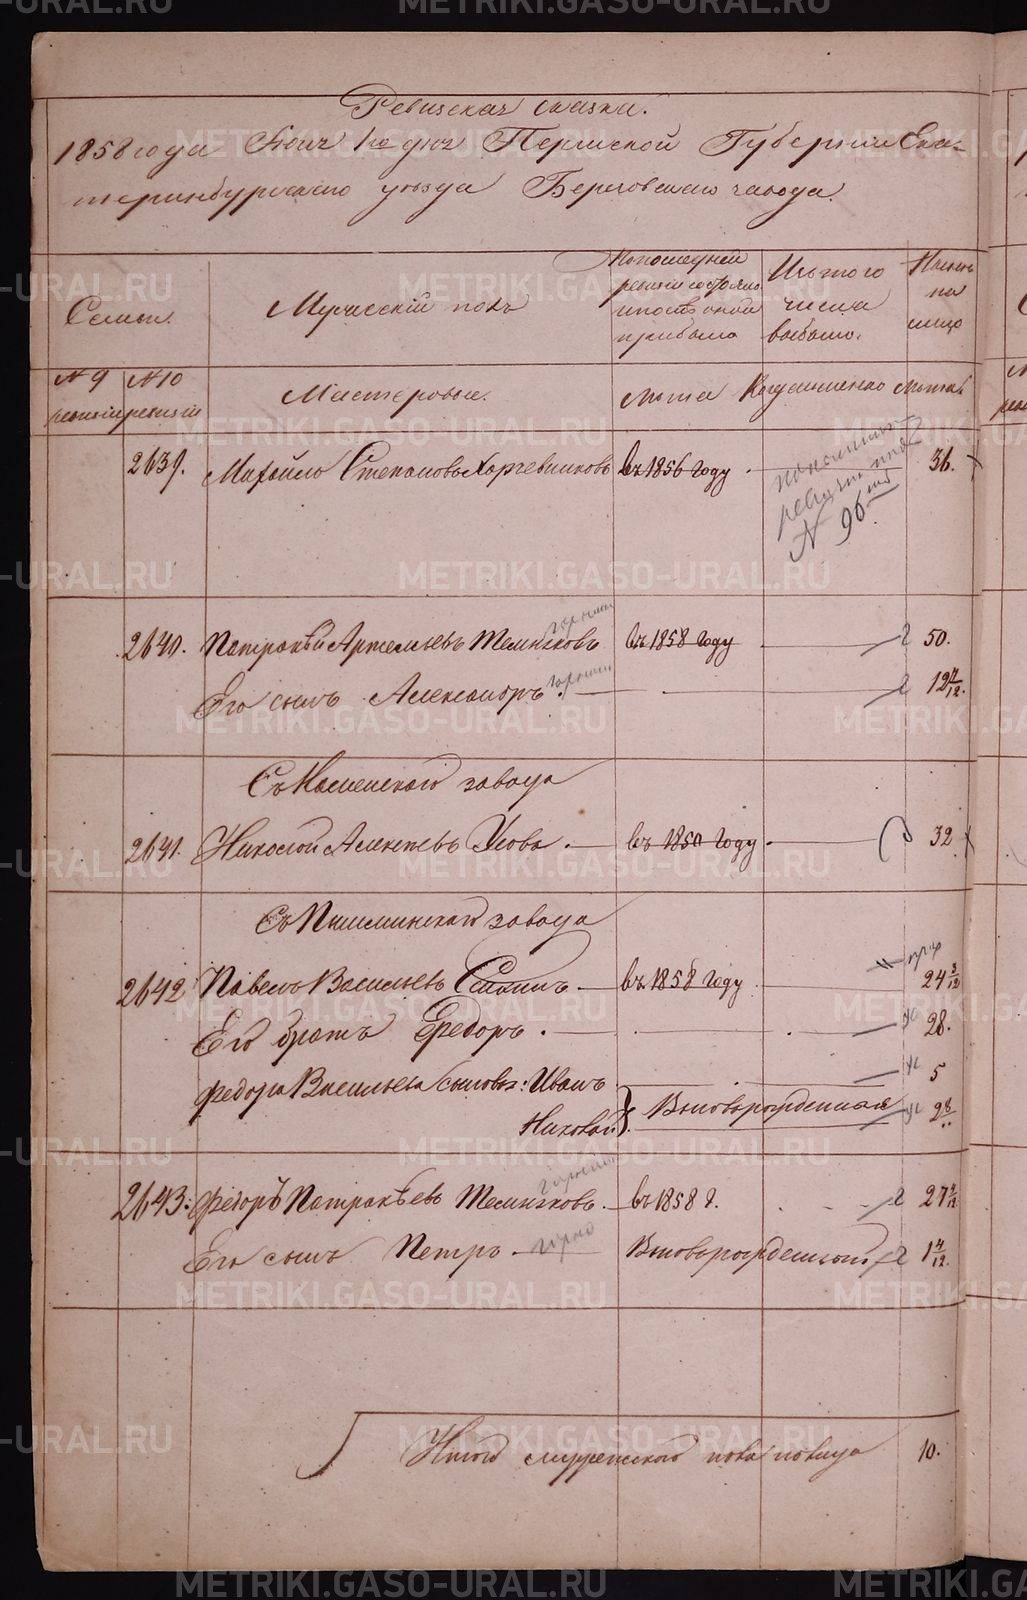 Ревизская сказка.
1858 года Июня 1го дня Пермской Губернии Ека-
теринбургскаго уезда Березовскаго завода.
Семьи.
Мужескій полъ
По последней
ревизіи состояло
и после оной
прибыло
Изъ того
числа
выбыло.
Ныне
на
лицо
№ 9
ревизіи
№ 10
ревизіи
Мастеровые.
Лета
Когда именно
Лета
2639. Михайло Степановъ Харчевниковъ въ 1856 году 36.
по
ревизіи под
N 96
2640. Патракѣй Артемьевъ Темниковъ въ 1858 году 50.
Его сынъ Александръ. 12 4/12.
Съ Каменскаго завода
2641. Николай Алексѣевъ Усовъ. въ 1850 году 32
Съ Пышминскаго завода
2642 Павелъ Васильевъ въ 1858 году 24 3/12
Его братъ Федоръ. 28.
Федора Васильева сыновья: Иванъ 5
Николай. Вновьрожденные 2
2643. Федоръ Патракѣевъ Темниковъ. въ 1858 г. 27
Его сынъ Петръ Вновьрожденный 1 4/12.
Итого мужескаго пола на лицо 10.
METRIKI.GASO-URAL.RU